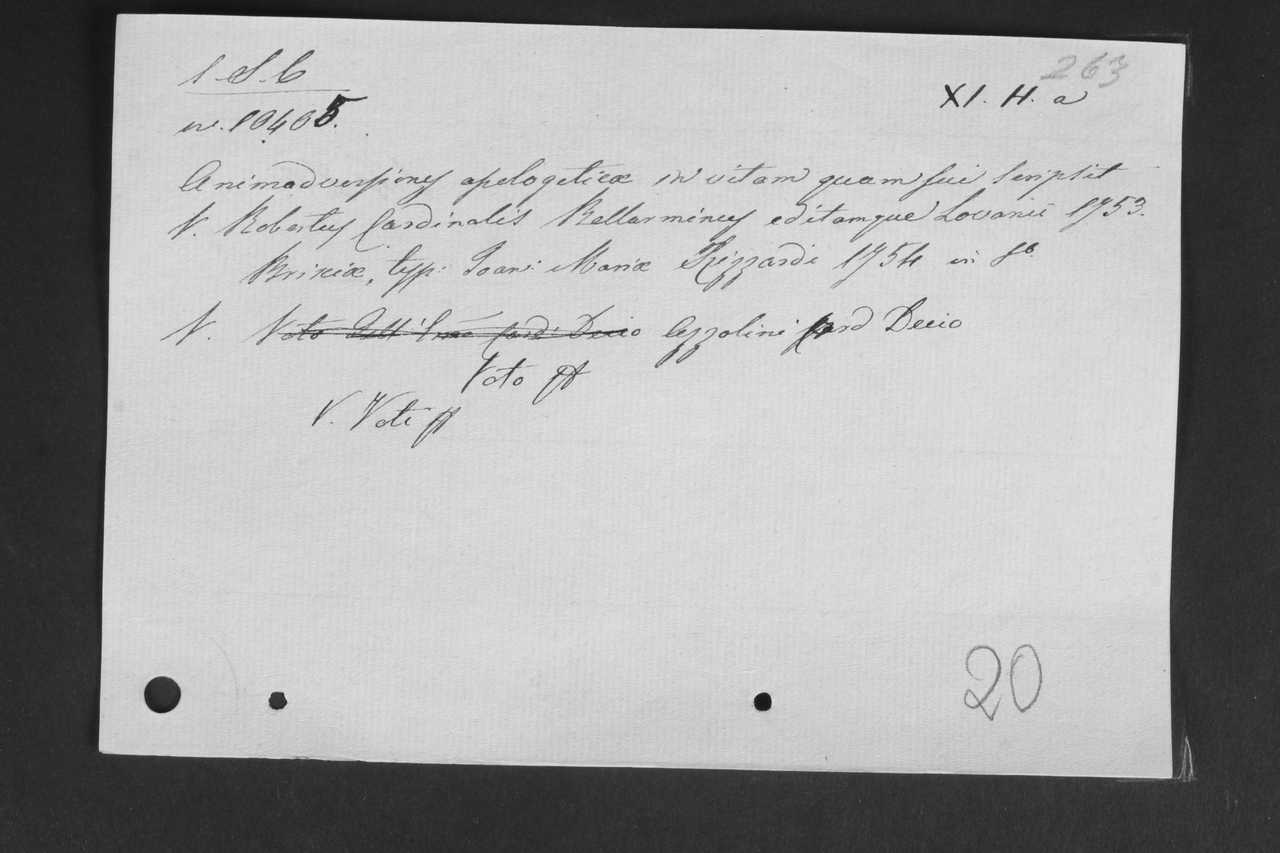 263
1. S. C
XI. H. a
nr. 10405.
Animadversiones apologeticæ in vitam quam sui scripsit
V. Robertus Cardinalis Bellarminus editamque Lovanii 1753.
Brixiæ, typ: Joan: Mariæ Rizzardi 1754 in 8º.
V. Voto dell' Card: Decio Azzolini Card Decio
Voto
V. Voti
20